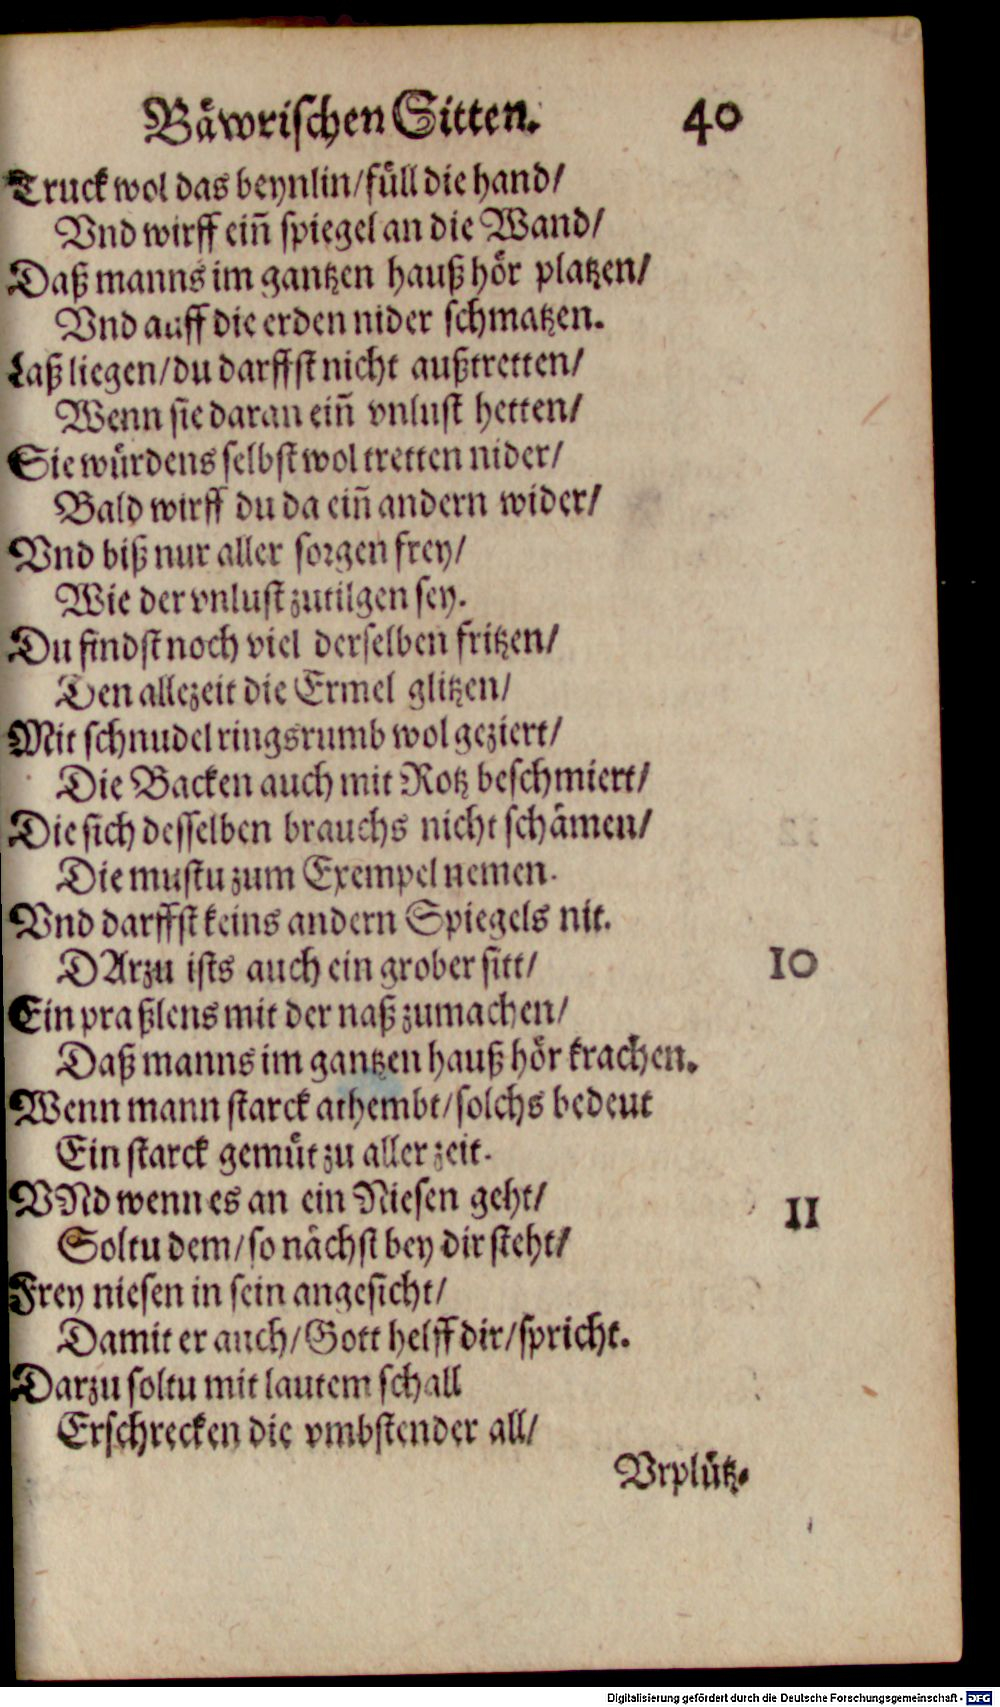 Bäwrischen Sitten. 40
Truck wol das beynlin/füll die hand/
Vnd wirff ein̄ spiegel an die Wand/
Daß manns im gantzen hauß hör platzen/
Vnd auff die erden nider schmatzen.
Laß liegen/du darffst nicht außtretten/
Wenn sie daran ein̄ vnlust hetten/
Sie würdens selbst wol tretten nider/
Bald wirff du da ein̄ andern wider/
Vnd biß nur aller sorgen frey/
Wie der vnlust zutilgen sey.
Du findst noch viel derselben fritzen/
Den allezeit die Ermel glitzen/
Mit schnudel ringsrumb wol geziert/
Die Backen auch mit Rotz beschmiert/
Die sich desselben brauchs nicht schämen/
Die mustu zum Exempel nemen.
Vnd darffst keins andern Spiegels nit.
DArzu ists auch ein grober sitt/ 10
Ein praßlens mit der naß zumachen/
Daß manns im gantzen hauß hör krachen.
Wenn mann starck athembt/solchs bedeut
Ein starck gemüt zu aller zeit.
VNd wenn es an ein Niesen geht/ 11
Soltu dem/so nächst bey dir steht/
Frey niesen in sein angesicht/
Damit er auch/Gott helff dir/spricht.
Darzu soltu mit lautem schall
Erschrecken die vmbstender all/
Vrplütz-
Digitalisierung gefördert durch die Deutsche Forschungsgemeinschaft - DFG